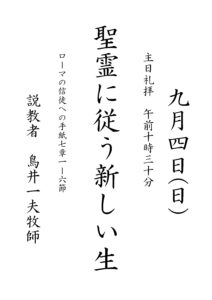 九月四日(日)
主日礼拝　午前十時三十分
聖霊に従う新しい生
ローマの信徒への手紙七章一―六節
説教者　鳥井一夫牧師